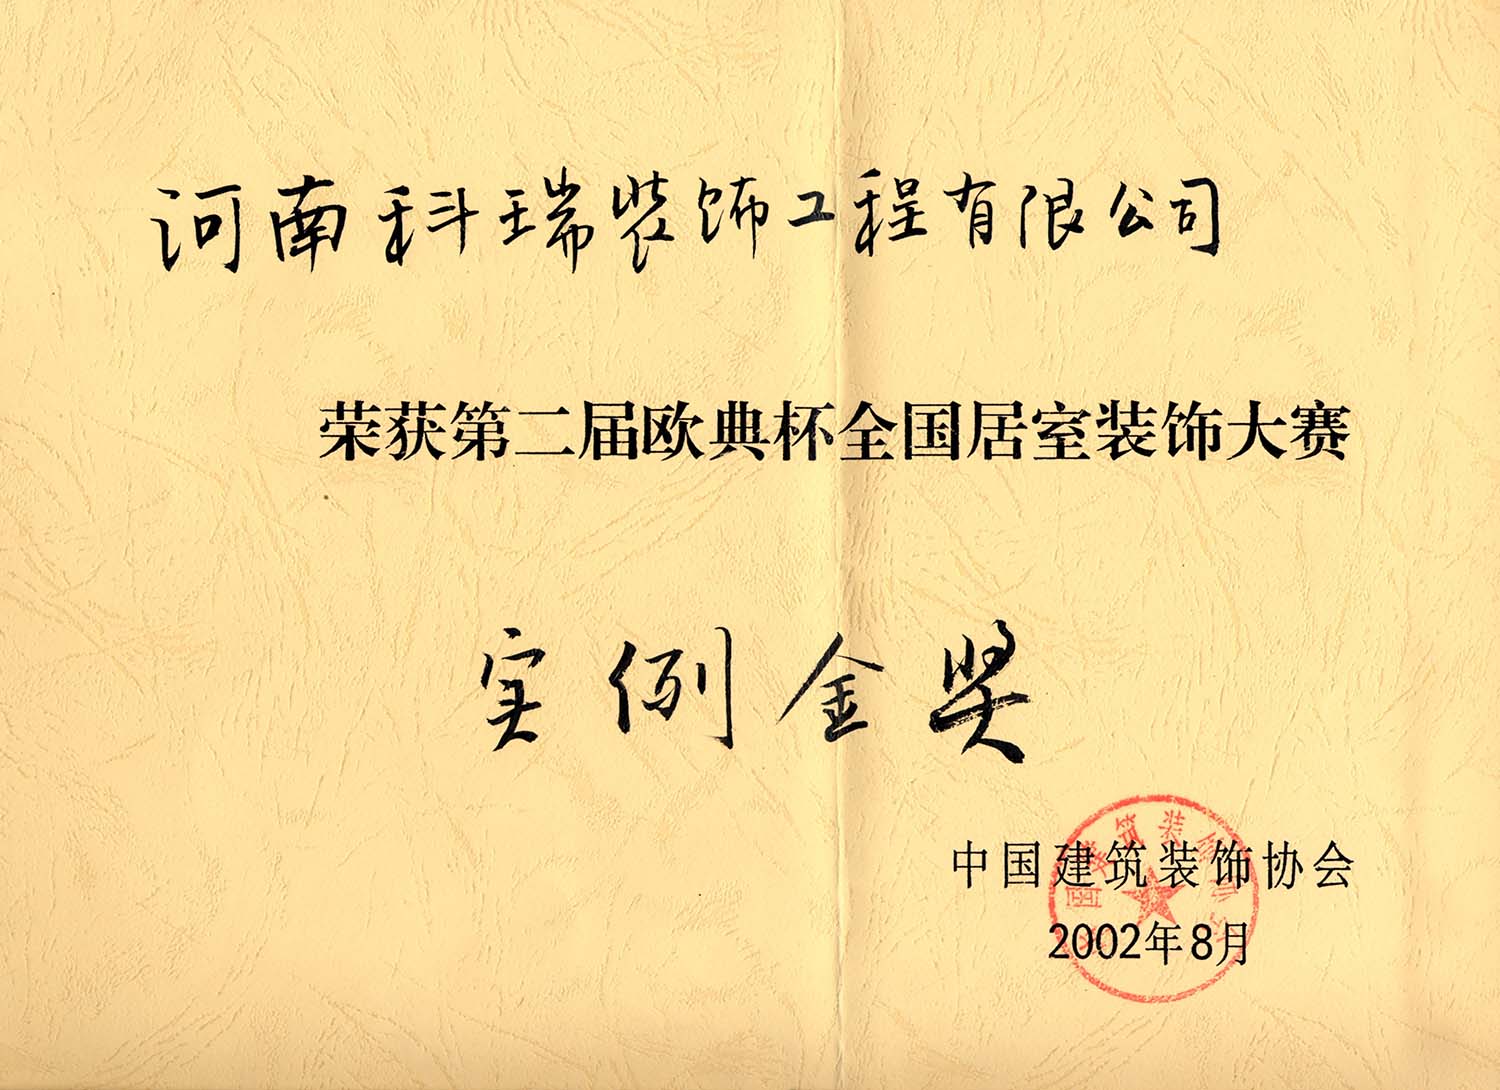 河南科瑞装饰工程有限公司
荣获第二届欧典杯全国居室装饰大赛
实例金奖
中国建筑装饰协会
2002年8月